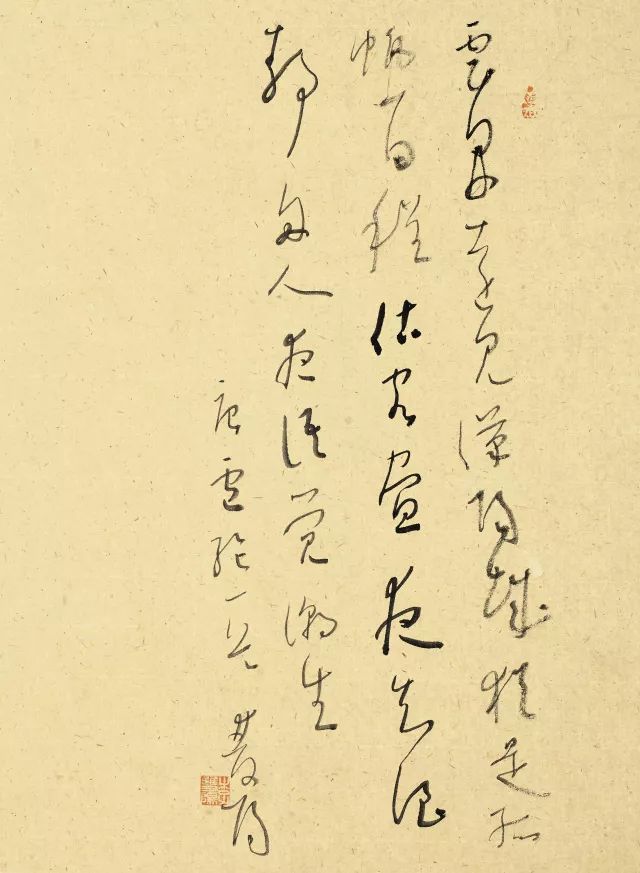 雲開遠見漢陽城猶是孤
帆一日程估客晝夜知浪
靜舟人夜語覺潮生
唐盧綸一首